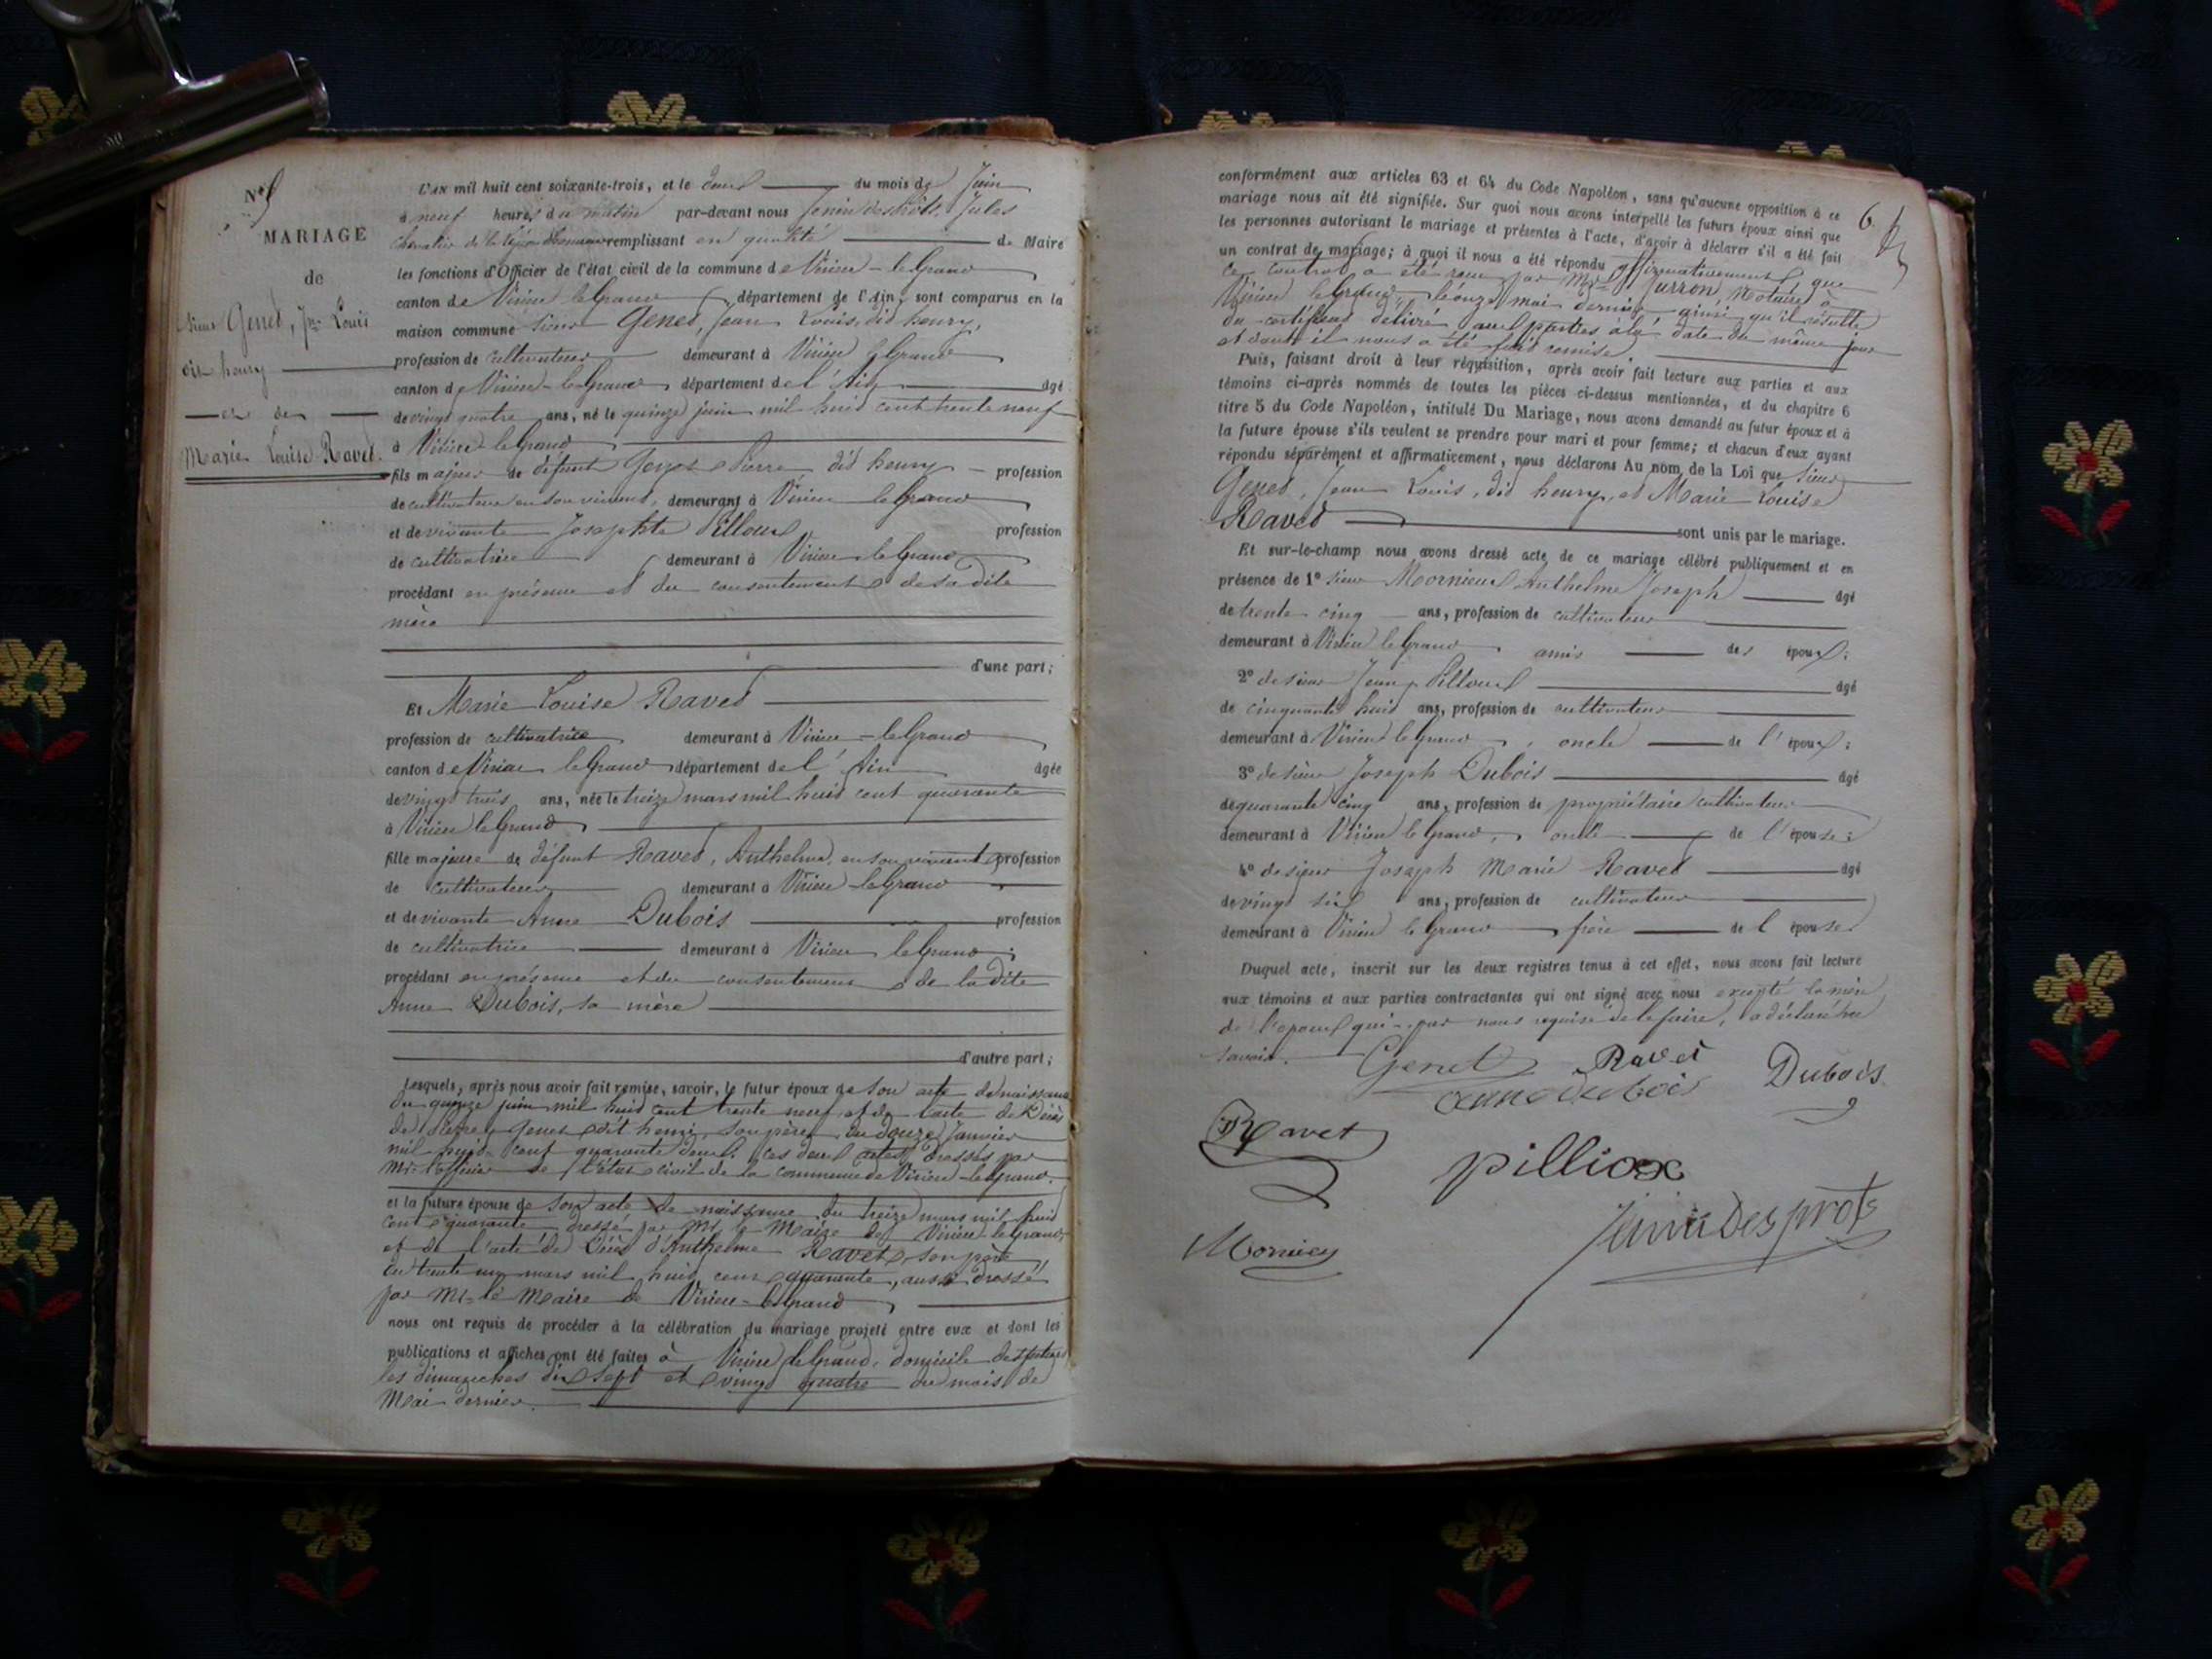 N° 5
MARIAGE
de
Sieur Genet, Jn Louis
dit henry
et de
Marie Louise Ravet.
L'AN mil huit cent soixante-trois, et le deux du mois de Juin
à neuf heures du matin par-devant nous Jenin desprôts, Jules
chevalier de la légion d'honneur remplissant en qualité de Maire
les fonctions d'Officier de l'état civil de la commune de Virieu-le-Grand
canton de Virieu le Grand, département de l'Ain, sont comparus en la
maison commune sieur Genet, Jean Louis, dit henry,
profession de cultivateur demeurant à Virieu le Grand
canton de Virieu-le-Grand département de l'Ain âgé
de vingt quatre ans, né le quinze juin mil huit cent trente neuf
à Virieu le Grand
fils majeur de défunt Genet Pierre dit henry profession
de cultivateur en son vivant, demeurant à Virieu le Grand
et de vivante Josephte Pilloux profession
de cultivatrice demeurant à Virieu le Grand
procédant en présence et du consentement de sa dite
mère
d'une part;
Et Marie Louise Ravet
profession de cultivatrice demeurant à Virieu-le-Grand
canton de Virieu le Grand département de l'Ain âgée
de vingt trois ans, née le treize mars mil huit cent quarante
à Virieu le Grand
fille majeure de défunt Ravet, Anthelme, en son vivant profession
de cultivateur demeurant à Virieu-le-Grand
et de vivante Anne Dubois profession
de cultivatrice demeurant à Virieu le Grand;
procédant en présence et du consentement de la dite
Anne Dubois, sa mère
d'autre part;
Lesquels, après nous avoir fait remise, savoir, le futur époux de son acte de naissance
du quinze juin mil huit cent trente neuf, et de l'acte de Décès
de Pierre Genet dit henri, son père, du douze Janvier
mil huit cent quarante deux, ces deux actes dressés par
Mr. l'officier de l'état civil de la commune de Virieu-le-Grand.
et la future épouse de son acte de naissance du treize mars mil huit
cent quarante dressé par Mr. le Maire de Virieu-le-Grand,
et de l'acte de Décès d'Anthelme Ravet, son père
du trente un mars mil huit cent quarante, aussi dressé
par Mr. le Maire de Virieu-le-Grand
nous ont requis de procéder à la célébration du mariage projeté entre eux et dont les
publications et affiches ont été faites à Virieu le Grand, domicile des parties
les dimanches dix sept et vingt quatre du mois de
Mai dernier.
6.
conformément aux articles 63 et 64 du Code Napoléon, sans qu'aucune opposition à ce
mariage nous ait été signifiée. Sur quoi nous avons interpellé les futurs époux ainsi que
les personnes autorisant le mariage et présentes à l'acte, d'avoir à déclarer s'il a été fait
un contrat de mariage; à quoi il nous a été répondu affirmativement que
ce contrat a été reçu par Mr. Jurron Notaire à
Virieu le Grand, le onze mai dernier ainsi qu'il résulte
du certificat délivré aux parties à la date du même jour
et dont il nous a été fait remise
Puis, faisant droit à leur réquisition, après avoir fait lecture aux parties et aux
témoins ci-après nommés de toutes les pièces ci-dessus mentionnées, et du chapitre 6
titre 5 du Code Napoléon, intitulé Du Mariage, nous avons demandé au futur époux et à
la future épouse s'ils veulent se prendre pour mari et pour femme; et chacun d'eux ayant
répondu séparément et affirmativement, nous déclarons Au nom de la Loi que sieur
Genet, Jean Louis, dit henry, et Marie Louise
Ravet sont unis par le mariage.
Et sur-le-champ nous avons dressé acte de ce mariage célébré publiquement et en
présence de 1° sieur Mornieux Anthelme Joseph âgé
de trente cinq ans, profession de cultivateur
demeurant à Virieu le Grand, amis des époux;
2° de sieur Jean Pilloux âgé
de cinquante huit ans, profession de cultivateur
demeurant à Virieu le Grand, oncle de l'époux;
3° de sieur Joseph Dubois âgé
de quarante cinq ans, profession de propriétaire cultivateur
demeurant à Virieu le Grand, oncle de l'épouse;
4° de sieur Joseph Marie Ravet âgé
de vingt six ans, profession de cultivateur
demeurant à Virieu le Grand frère de l'épouse
Duquel acte, inscrit sur les deux registres tenus à cet effet, nous avons fait lecture
aux témoins et aux parties contractantes qui ont signé avec nous excepté la mère
de l'époux qui par nous requise de le faire, a déclaré ne
savoir.
Genet Ravet
anne dubois Dubois
Ravet
pilliox
Jenin Desprots
Mornieu